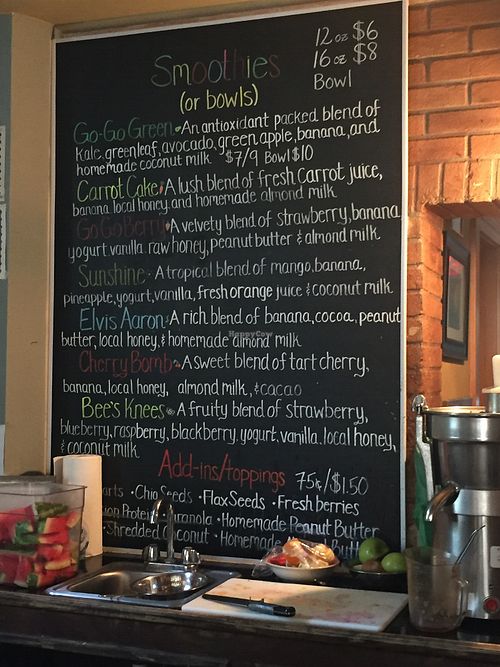 Smoothies
(or bowls)
12 oz $6
16 oz $8
Bowl
Go-Go Green • An antioxidant packed blend of
kale, greenleaf, avocado, green apple, banana, and
homemade coconut milk $7/9 Bowl $10
Carrot Cake • A lush blend of fresh Carrot juice,
banana, local honey, and homemade almond milk
Go Go Berry • A velvety blend of strawberry, banana
yogurt, vanilla, raw honey, peanut butter & almond milk
Sunshine • A tropical blend of mango, banana,
pineapple, yogurt, vanilla, fresh orange juice & coconut milk
Elvis Aaron • A rich blend of banana, cocoa, peanut
butter, local honey, & homemade almond milk
HappyCow
Cherry Bomb • A sweet blend of tart cherry,
banana, local honey, almond milk, & cacao
Bee's Knees • A fruity blend of strawberry,
blueberry, raspberry, blackberry, yogurt, vanilla, local honey,
& coconut milk
Add-ins/toppings 75¢/$1.50
arts • Chia Seeds • Flax Seeds • Fresh berries
Protein Granola • Homemade Peanut Butter
• Shredded Coconut • Homemade Butt